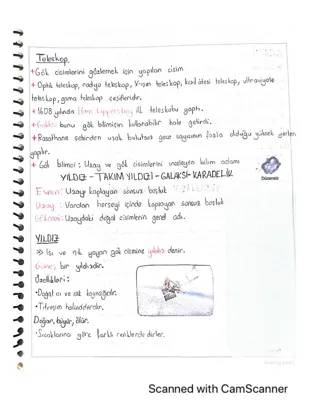 Teleskop
+Gök cisimlerini gözlemek için yapılan cisim
+Optik teleskop, radyo teleskop, X-ışın teleskop, kızıl ötesi teleskop, ultraviyole
teleskop, gama teleskop çeşitleridir.
+1608 yılında Hans Lippershey ilk teleskobu yaptı.
+Galileo bunu gök bilimi için kullanabilir hale getirdi.
+Rasathane şehirden uzak bulutsuz gece sayısının fazla olduğu yüksek yerlere
yapılır.
+ Gök bilimci: Uzay ve gök cisimlerini inceleyen bilim adamı
YILDIZ-TAKIM YILDIZI-GALAKSİ-KARADELİK
Evren: Uzayı kaplayan sonsuz boşluk
Uzay: Varolan herşeyi içinde kaplayan sonsuz boşluk
Gök cismi: Uzaydaki doğal cisimlerin genel adı.
YILDIZ
Isı ve ışık yayan gök cismine yıldız denir.
Güneş bir yıldızdır.
Özellikleri:
•Doğal ısı ve ışık kaynağıdır.
•Titreşim halindedirler.
Doğar, büyür, ölür.
•Sıcaklıklarına göre farklı renklerdedirler.
Scanned with CamScanner